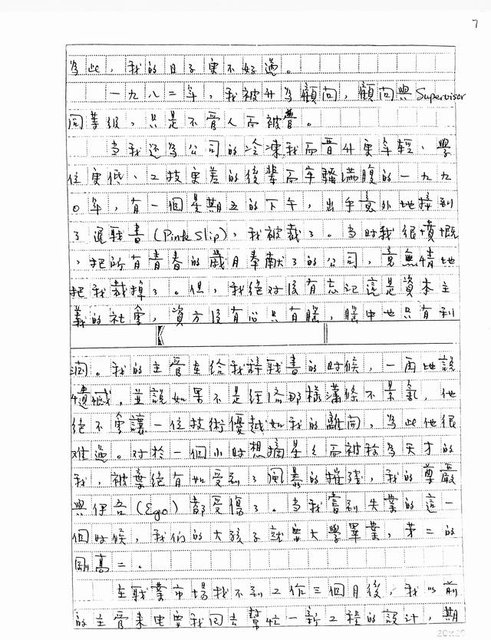 7
為此，我的日子更不好過。
一九八二年，我被升為顧問，顧問與Supervisor
同等級，只是不管人而被管。
當我還為公司的冷凍我而晉升更年輕、學
位更低、工技更差的後輩而牢騷滿腹的一九九
〇年，有一個星期五的下午，出乎意外地接到
了退職書(Pink Slip)，我被裁了。當時我很憤慨
，把所有青春的歲月奉獻了的公司，竟無情地
把我裁掉了。但，我絕對沒有忘記這是資本主
義的社會，資方沒有心只有膽，膽中也只有利
潤。我的主管在給我辭職書的時候，一再地說
遺憾，並說如果不是經濟那樣蕭條不景氣，他
絕不會讓一位技術優越如我的離開，為此他很
難過。對於一個小時想摘星星而被稱為天才的
我，被棄絕有如受到了風暴的摧殘，我的尊嚴
與伊吾(Ego)都受傷了。當我嘗到失業的這一
個時候，我們的大孩子就要大學畢業，第二的
剛高二。
在職業市場找不到工作三個月後，我以前
的主管來電要我回去幫忙一新工程的設計，期